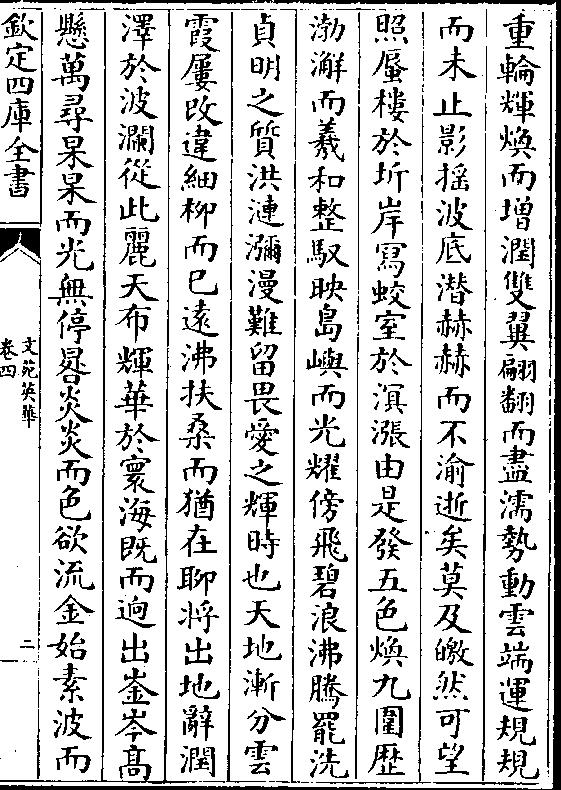 重輪輝煥而增潤雙翼翩翻而盡濡勢動雲端運規規
而未止影摇波底潜赫赫而不渝逝矣莫及皦然可望
照蜃樓於圻岸寫蛟室於溟漲由是發五色煥九圍歴
渤澥而羲和整馭映島嶼而光耀傍飛碧浪沸騰罷洗
貞明之質洪漣瀰漫難留畏愛之輝時也天地漸分雲
霞屢改違細柳而已遠沸扶桑而猶在聊將出地辭潤
澤於波瀾從此麗天布輝華於寰海既而逈出崟岑髙
懸萬尋杲杲而光無停晷炎炎而色欲流金始素波而
欽定四庫全書
文苑英華
卷四
二